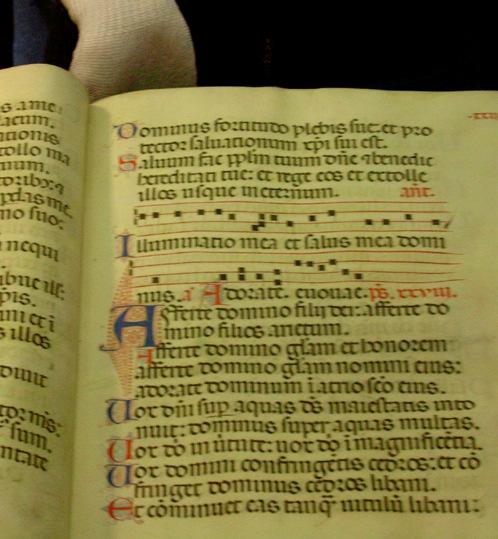 s ame:
lacum.
tationis
tollo ma
nuum.
toribz: q
ydas me
no suo:
neqĩ
ibue ill:
pis.
uni et i
illos
diuit
tor m̃s:
sum.
ntate
Dominus fortitudo plebis sue: et pro
tector saluationum xp̃i sui est.
Saluum fac pplm tuum dñe ⁊ benedic
hereditati tue: et rege eos et extolle
illos usque in eternum. añt.
Illuminatio mea et salus mea domi
nus. a Adorate. euouae. ps. xxviii.
Afferte domino filij dei: afferte do
mino filios arietum.
Afferte domino glam et honorem
afferte domino glam nomini eius:
adorate dominum ĩ atrio sc̃o eius.
Uox dñi sup aquas ds̃ maiestatis into
nuit: dominus super aquas multas.
Uox dõ in ũtute: uox dõ ĩ magnificẽtia.
Uox domini confringẽtis cedros: et cõ
fringet dominus cedros libani.
Et cõminuet eas tanq̃ uitulũ libani: